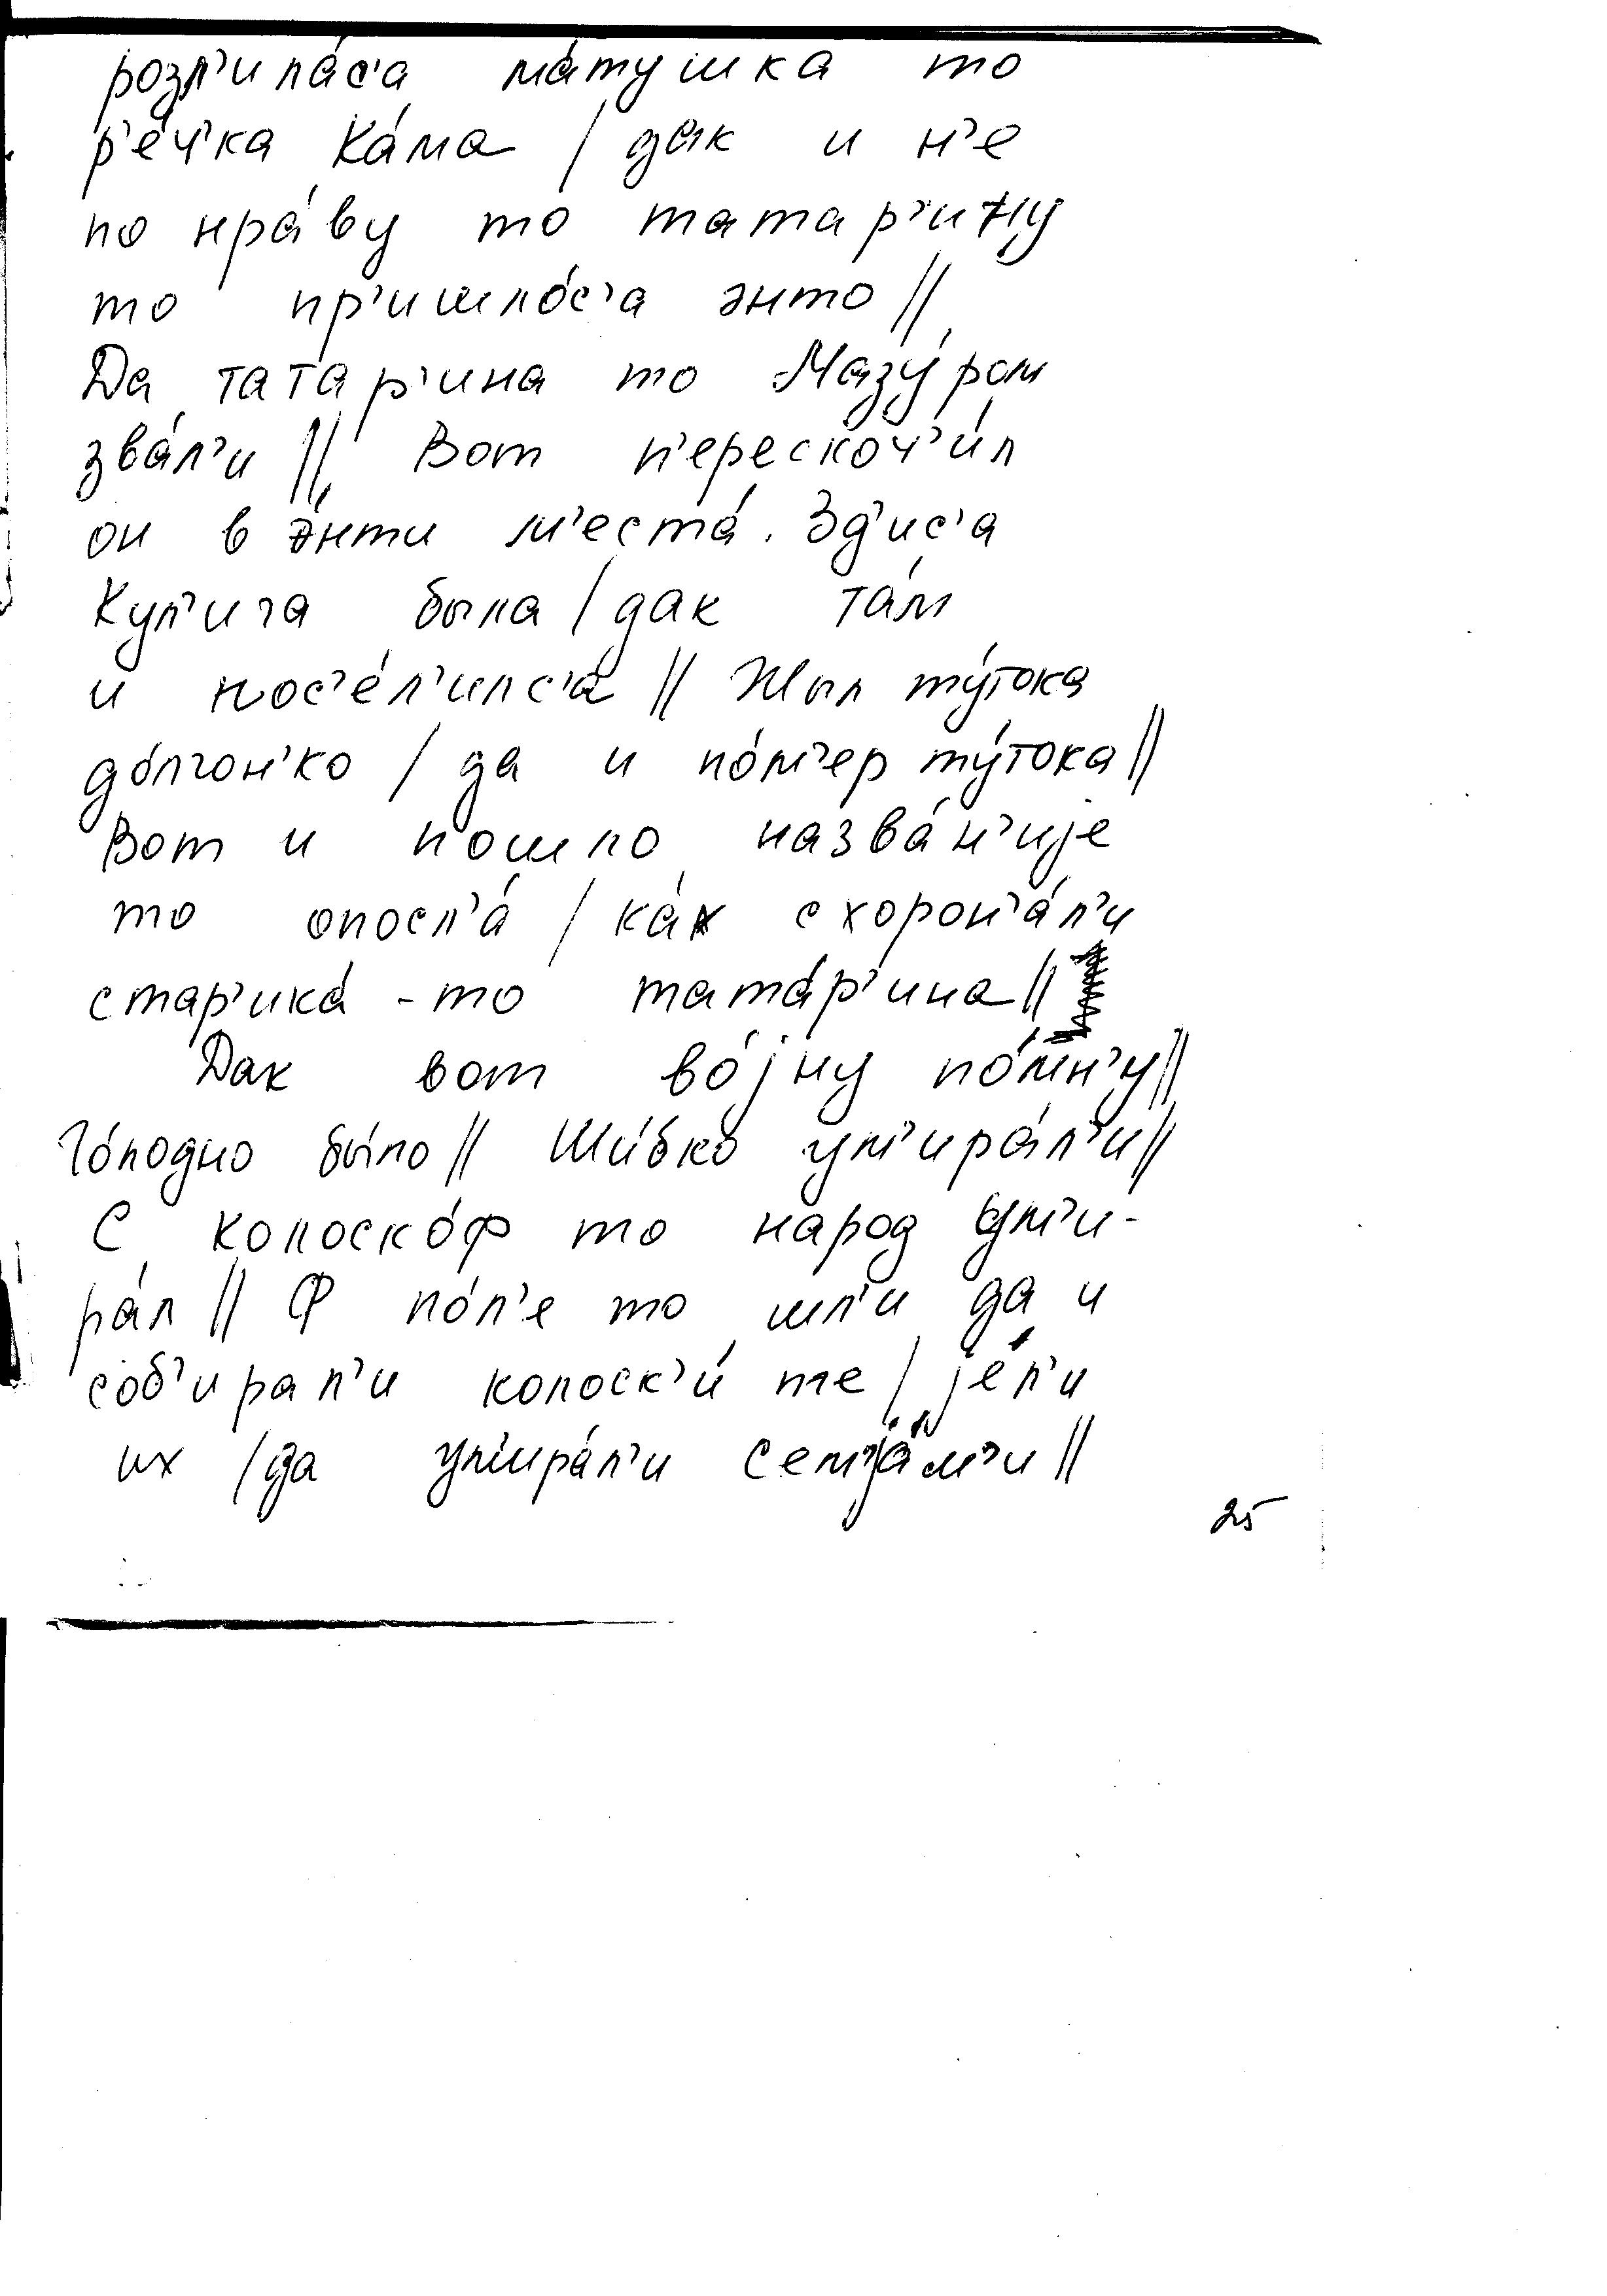 розл'ила́с'а ма́тушка то
р'е́ч'ка Ка́ма / дак и н'е
по нра́ву то татар'ину
то пр'ишло́с'а энто //
Да тата́р'ина то Мазу́ром
зва́л'и // Вот п'ерескоч'и́л
он в э́нти м'еста́. Зд'ис'а
Кул'ига была / дак та́м
и пос'е́л'илс'а // Жыл ту́тока
до́лгон'ко / да и по́м'ер ту́тока //
Вот и пошло назва́н'ијe
то опосл'а́ / ка́к схорон'а́л'и
стар'ика́ - то тата́р'ина //
Дак вот во́јну по́мн'у //
Го́лодно бы́ло // Ши́бко ум'ира́л'и //
С колоско́ф то народ ум'и-
ра́л // Ф по́л'е то шл'и да и
соб'ирал'и колоск'и́ те / је́л'и
их / да ум'ира́л'и сем'ја́м'и //
25